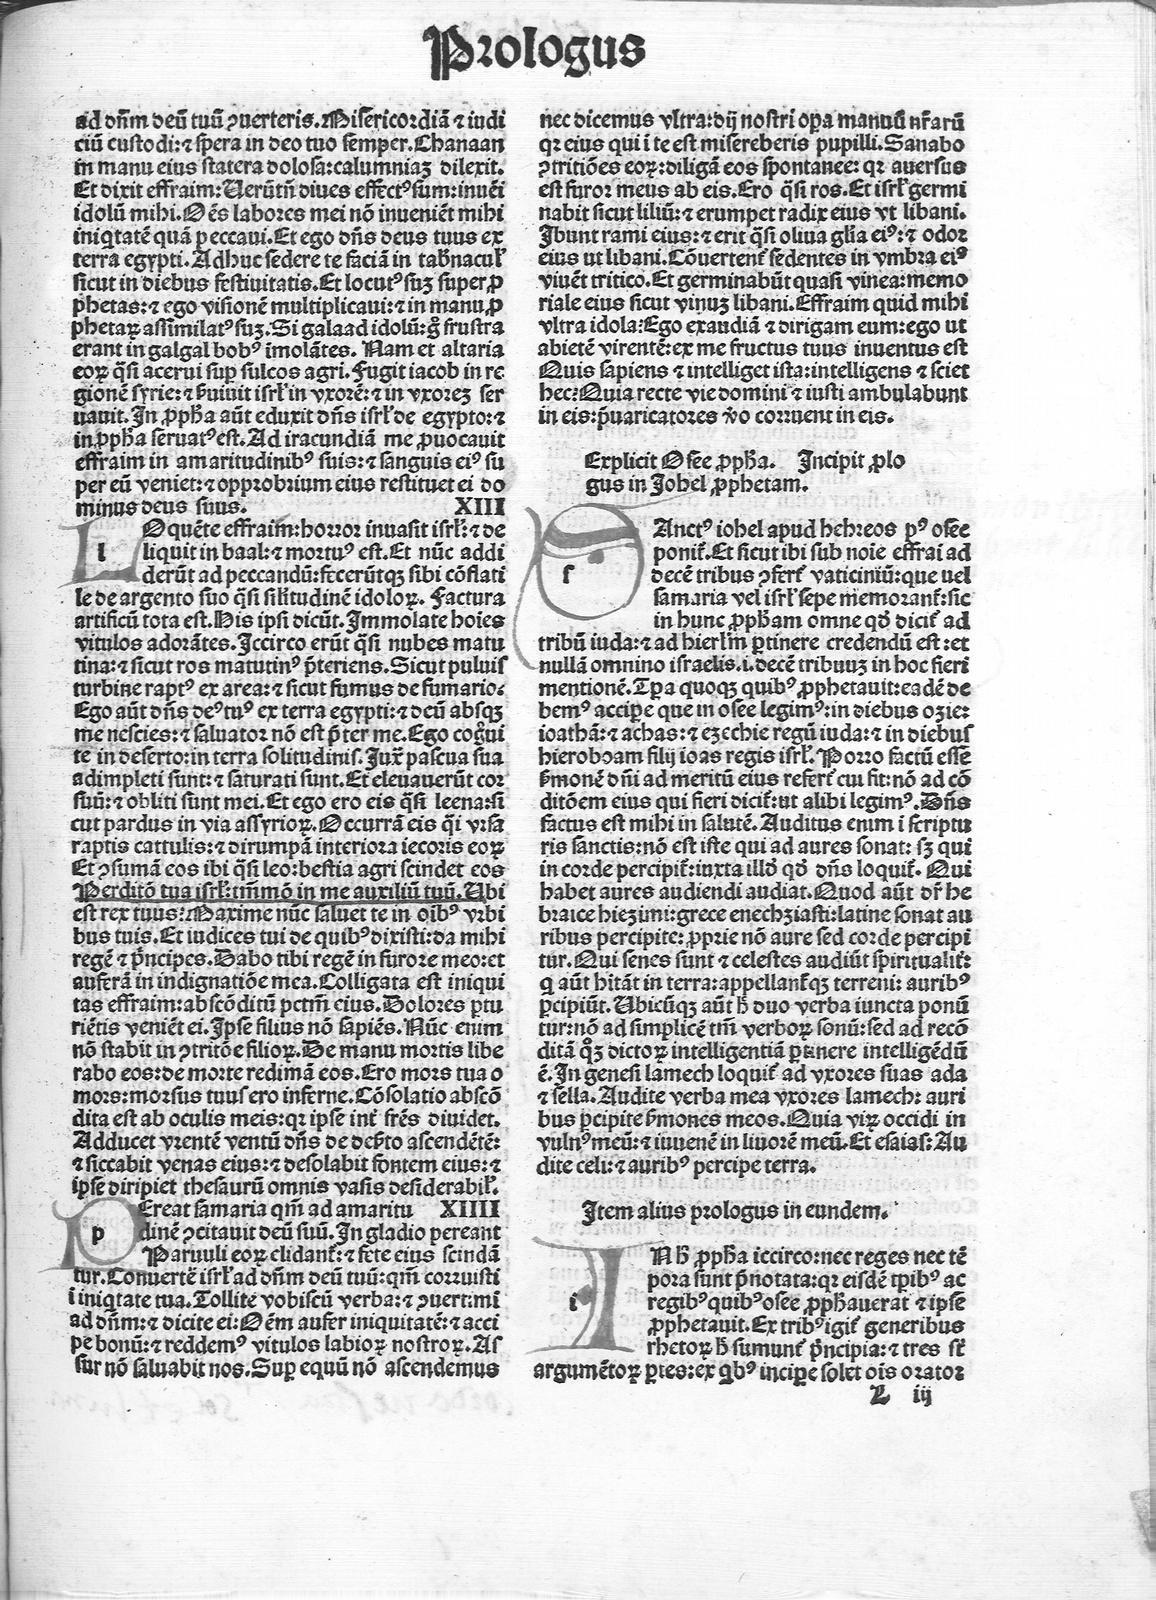 Prologus
ad dñm deũ tuũ ꝯuerteris. Misericordiã ⁊ iudi
ciũ custodi: ⁊ spera in deo tuo semper. Chanaan
in manu eius statera dolosa: calumniaꝫ dilexit.
Et dixit effraim: Verũtñ diues effectꝰ sum: inuẽi
idolũ mihi. Oẽs labores mei nõ inueniẽt mihi
iniqtatẽ quã peccaui. Et ego dñs deus tuus ex
terra egypti. Adhuc sedere te faciã in tab̃nacul̃
sicut in diebus festiuitatis. Et locutꝰ suꝫ super ꝓ
phetas: ⁊ ego visionẽ multiplicaui: ⁊ in manu ꝓ
phetaꝝ assimilatꝰ suꝫ. Si galaad idolũ: g̃ frustra
erant in galgal bobꝰ imolãtes. Nam et altaria
eoꝝ q̃si acerui sup̱ sulcos agri. Fugit iacob in re
gionẽ syrie: ⁊ ẜuiuit isrl̃ in vxorẽ: ⁊ in vxoreꝫ ser
uauit. In ꝓph̃a aũt eduxit dñs isrl̃ de egypto: ⁊
in ꝓph̃a seruatꝰ est. Ad iracundiã me ꝓuocauit
effraim in amaritudinibꝰ suis: ⁊ sanguis eiꝰ su
per eũ veniet: ⁊ opprobrium eius restituet ei do
minus deus suus. XIII
l Oquẽte effraim: horror inuasit isrl̃: ⁊ de
liquit in baal: ⁊ mortuꝰ est. Et nũc addi
derũt ad peccandũ: fecerũtqꝫ sibi cõflati
le de argento suo q̃si sil̃itudinẽ idoloꝝ. Factura
artificũ tota est. His ipsi dicũt. Immolate hoies
vitulos adorãtes. Iccirco erũt q̃si nubes matu
tina: ⁊ sicut ros matutinꝰ p̃teriens. Sicut puluis
turbine raptꝰ ex area: ⁊ sicut fumus de fumario.
Ego aũt dñs deꝰ tuꝰ ex terra egypti: ⁊ deũ absqꝫ
me nescies: ⁊ saluator nõ est p̃ter me. Ego cog̃ui
te in deserto: in terra solitudinis. Jux̃ pascua sua
adimpleti sunt: ⁊ saturati sunt. Et eleuauerũt cor
suũ: ⁊ obliti sunt mei. Et ego ero eis q̃si leena: si
cut pardus in via assyrioꝝ. Occurrã eis q̃i vrsa
raptis cattulis: ⁊ dirumpã interiora iecoris eoꝝ
Et ꝯsumã eos ibi q̃si leo: bestia agri scindet eos
Perditõ tua isrl̃: tm̃mõ in me auxiliũ tuũ. Vbi
est rex tuus? Maxime nũc saluet te in oĩbꝰ vrbi
bus tuis. Et iudices tui de quibꝰ dixisti: da mihi
regẽ ⁊ p̃ncipes. Dabo tibi regẽ in furore meo: et
auferã in indignatiõe mea. Colligata est iniqui
tas effraim: abscõditũ pctm̃ eius. Dolores ꝑtu
riẽtis veniẽt ei. Ipse filius nõ sapiẽs. Nũc enim
nõ stabit in ꝯtritõe filioꝝ. De manu mortis libe
rabo eos: de morte redimã eos. Ero mors tua o
mors: morsus tuus ero inferne. Cõsolatio abscõ
dita est ab oculis meis: qr ipse int̃ fr̃es diuidet.
Adducet vrentẽ ventũ dñs de deẜto ascendẽtẽ:
⁊ siccabit venas eius: ⁊ desolabit fontem eius: ⁊
ipse diripiet thesaurũ omnis vasis desiderabil̃.
p Ereat samaria qm̃ ad amaritu XIIII
dinẽ ꝯcitauit deũ suũ. In gladio pereant
Paruuli eoꝝ elidant̃: ⁊ fete eius scindã
tur. Conuertẽ isrl̃ ad dñm deũ tuũ: qm̃ corruisti
ĩ iniqtate tua. Tollite vobiscũ verba: ⁊ ꝯuertimĩ
ad dñm: ⁊ dicite ei: Oẽm aufer iniquitatẽ: ⁊ acci
pe bonũ: ⁊ reddemꝰ vitulos labioꝝ nostroꝝ. As
sur nõ saluabit nos. Sup̱ equũ nõ ascendemus
nec dicemus vltra: dij nostri op̱a manuũ nr̃arũ
qr eius qui ĩ te est misereberis pupilli. Sanabo
ꝯtritiões eoꝝ: diligã eos spontanee: qr auersus
est furor meus ab eis. Ero q̃si ros. Et isrl̃ germi
nabit sicut liliũ: ⁊ erumpet radix eius vt libani.
Ibunt rami eius: ⁊ erit q̃si oliua gl̃ia eiꝰ: ⁊ odor
eius ut libani. Cõuertent̃ sedentes in vmbra eiꝰ
viuẽt tritico. Et germinabũt quasi vinea: memo
riale eius sicut vinuꝫ libani. Effraim quid mihi
vltra idola? Ego exaudiã ⁊ dirigam eum: ego ut
abietẽ virentẽ: ex me fructus tuus inuentus est
Quis sapiens ⁊ intelliget ista: intelligens ⁊ sciet
hec? Quia recte vie domini ⁊ iusti ambulabunt
in eis: p̃uaricatores v̾o corruent in eis.
Explicit Osee ꝓph̃a. Incipit ꝓlo
gus in Johel ꝓphetam.
s Anctꝰ iohel apud hebreos pꝰ osee
ponit̃. Et sicut ibi sub noĩe effrai ad
decẽ tribus ꝯfert̃ vaticiniũ: que uel
samaria vel isrl̃ sepe memorant̃: sic
in hunc ꝓph̃am omne qđ dicit̃ ad
tribũ iuda: ⁊ ad hierl̃m ꝑtinere credendũ est: et
nullã omnino israelis .i. decẽ tribuuꝫ in hoc fieri
mentionẽ. Tꝑa quoqꝫ quibꝰ ꝓphetauit: eadẽ de
bemꝰ accipe que in osee legimꝰ: in diebus ozie:
ioathã: ⁊ achas: ⁊ ezechie regũ iuda: ⁊ in diebus
hieroboam filij ioas regis isrl̃. Porro factũ esse
ẜmonẽ dñi ad meritũ eius refert̃ cui fit: nõ ad cõ
ditõem eius qui fieri dicit̃: ut alibi legimꝰ. Dñs
factus est mihi in salutẽ. Auditus enim ĩ scriptu
ris sanctis: nõ est iste qui ad aures sonat: sꝫ qui
in corde percipit̃: iuxta illđ qđ dñs loquit̃. Qui
habet aures audiendi audiat. Quod aũt dr̃ he
braice hiezimi: grece enechziasti: latine sonat au
ribus percipite: ꝓprie nõ aure sed corde percipi
tur. Qui senes sunt ⁊ celestes audiũt spiritualit̃:
q aũt hitãt in terra: appellant̃qꝫ terreni: auribꝰ
ꝑcipiũt. Vbicũqꝫ aũt h̃ duo verba iuncta ponũ
tur: nõ ad simplicẽ tm̃ verboꝝ sonũ: sed ad recõ
ditã qꝫ dictoꝝ intelligentiã ꝑtinere intelligẽdũ
ẽ. In genesi lamech loquit̃ ad vxores suas ada
⁊ sella. Audite verba mea vxores lamech: auri
bus ꝑcipite ẜmones meos. Quia viꝝ occidi in
vulnꝰ meũ: ⁊ iuuenẽ in liuorẽ meũ. Et esaias: Au
dite celi: ⁊ auribꝰ percipe terra.
Item alius prologus in eundem.
i N h̃ ꝓph̃a iccirco: nec reges nec tẽ
pora sunt p̃notata: qr eisdẽ tꝑibꝰ ac
regibꝰ quibꝰ osee ꝓphauerat ⁊ ipse
ꝓphetauit. Ex tribꝰ igit̃ generibus
rhetoꝝ h̃ sumunt̃ p̃ncipia: ⁊ tres st̃
argumẽtoꝝ ꝑtes: ex qbꝰ incipe solet oĩs orator
L iij